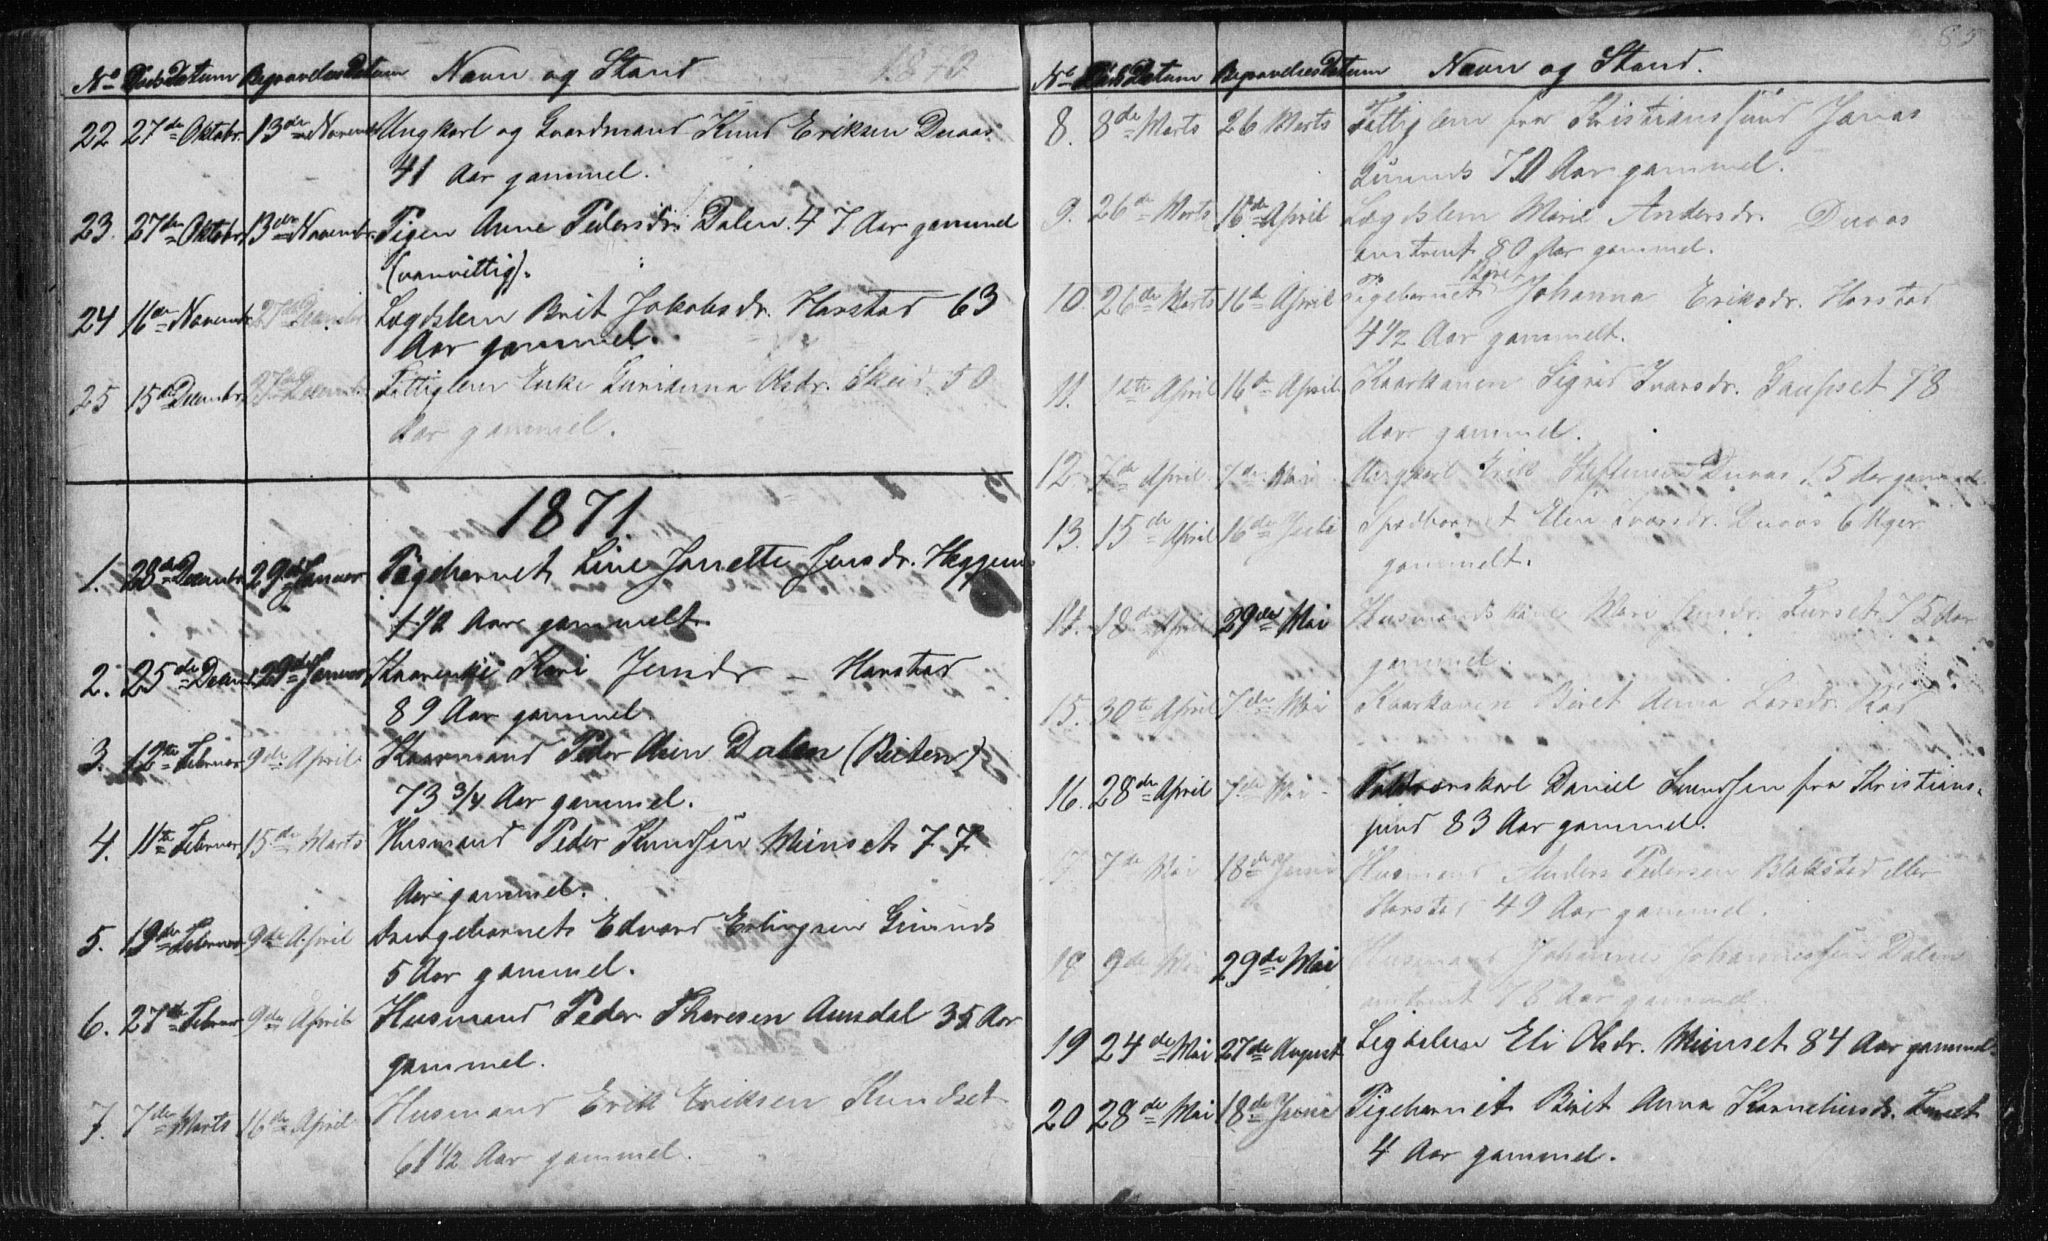 1870
No Døds Datum Begravelses Datum Navn og Stand
22 27de Oktobr. 13de Novembr Ungkarl og Gaardmand Knud Eriksen Duaas
41 Aar gammel.
23. 27de Oktobr. 13de Novembr. Pigen Anne Pedersdr. Dalen. 47 Aar gammel
(vanvittig).
24 16de Novembr 27de Decembr Lægdslem Brit Jakobsdr. Harstad 63
Aar gammel.
25 15de Decembr. 27de Decembr. Fattiglem Enke Gurianna Olsdr. Skeid 50
Aar gammel.
1871.
1. 28de Decembr. 29de Januar Pigebarnet Line Janette Jensdr. Heggem
1 1/2 Aar gammelt.
2. 25de Decemb 29de Januar Kaarenke Kari Jensdr – Harstad
89 Aar gammel.
3. 12te Februar 9de April Kaarmand Peder Dalen
73 3/4 Aar gammel.
4. 11te Februar 15de Marts Husmand Peder Knudsen 77
Aar gammel.
5. 19de Februar 9de April Drengebarnet Edvard Erlingsen
5 Aar gammel.
6. 27de Februar 9de April Husmand Peder Aunsdal 35 Aar
gammel.
7. 7de Marts 16de April Husmand Erik Eriksen Knudset
61 1/2 Aar gammel.
85
No Døds Datum Begravelses Datum Navn og Stand.
8. 8de Marts 26 Marts Fattiglem fra Kristianssund Jonas
70 Aar gammel.
9. 26de Marts 16de April Lægdslem Marit Andersdr. Duaas
omtrent 80 Aar gammel.
10. 26de Marts 16de April Pigebarnet Beret Johanna Eriksdr. Harstad
4 1/2 Aar gammelt.
11. 1ste April 16de April Kaarkonen Sigrid Ivarsdr. 78
Aar gammel.
12. 7de April 7de Mai Ungkarl Erik Duaas 15 Aar gammel
13. 15de April 16de Spædbarnet Elen Ivarsdr. Duaas 6 Uger
gammelt.
14. 18de April 29de Mai Husmandskone Furset 75 Aar
gammel.
15. 30te April 7de Mai Kaarkonen Beret Anna Larsdr.
16. 28de April 7de Mai Daniel fra Kristians-
sund 83 Aar gammel.
17. 7de Mai 18de Juni Husmand Anders Pedersen Blakstad eller
Harstad 49 Aar gammel.
18 9de Mai 29de Mai Husmand Johannes Johannessen Dalen
omtrent 78 Aar gammel.
19 24de Mai 27de August Eli Olsdr. 84 Aar gammel.
20 28de Mai 18de Juni Pigebarnet Beret Anna Korneliusdr. Furset
4 Aar gammel.